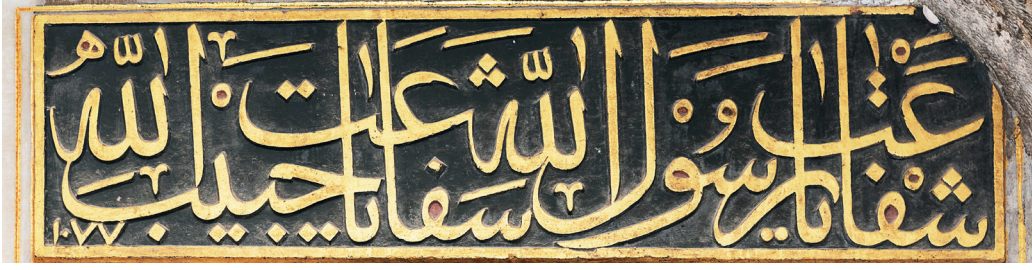 شفاعت يا رسول الله شفاعت يا حبيب الله
١٠٧٧